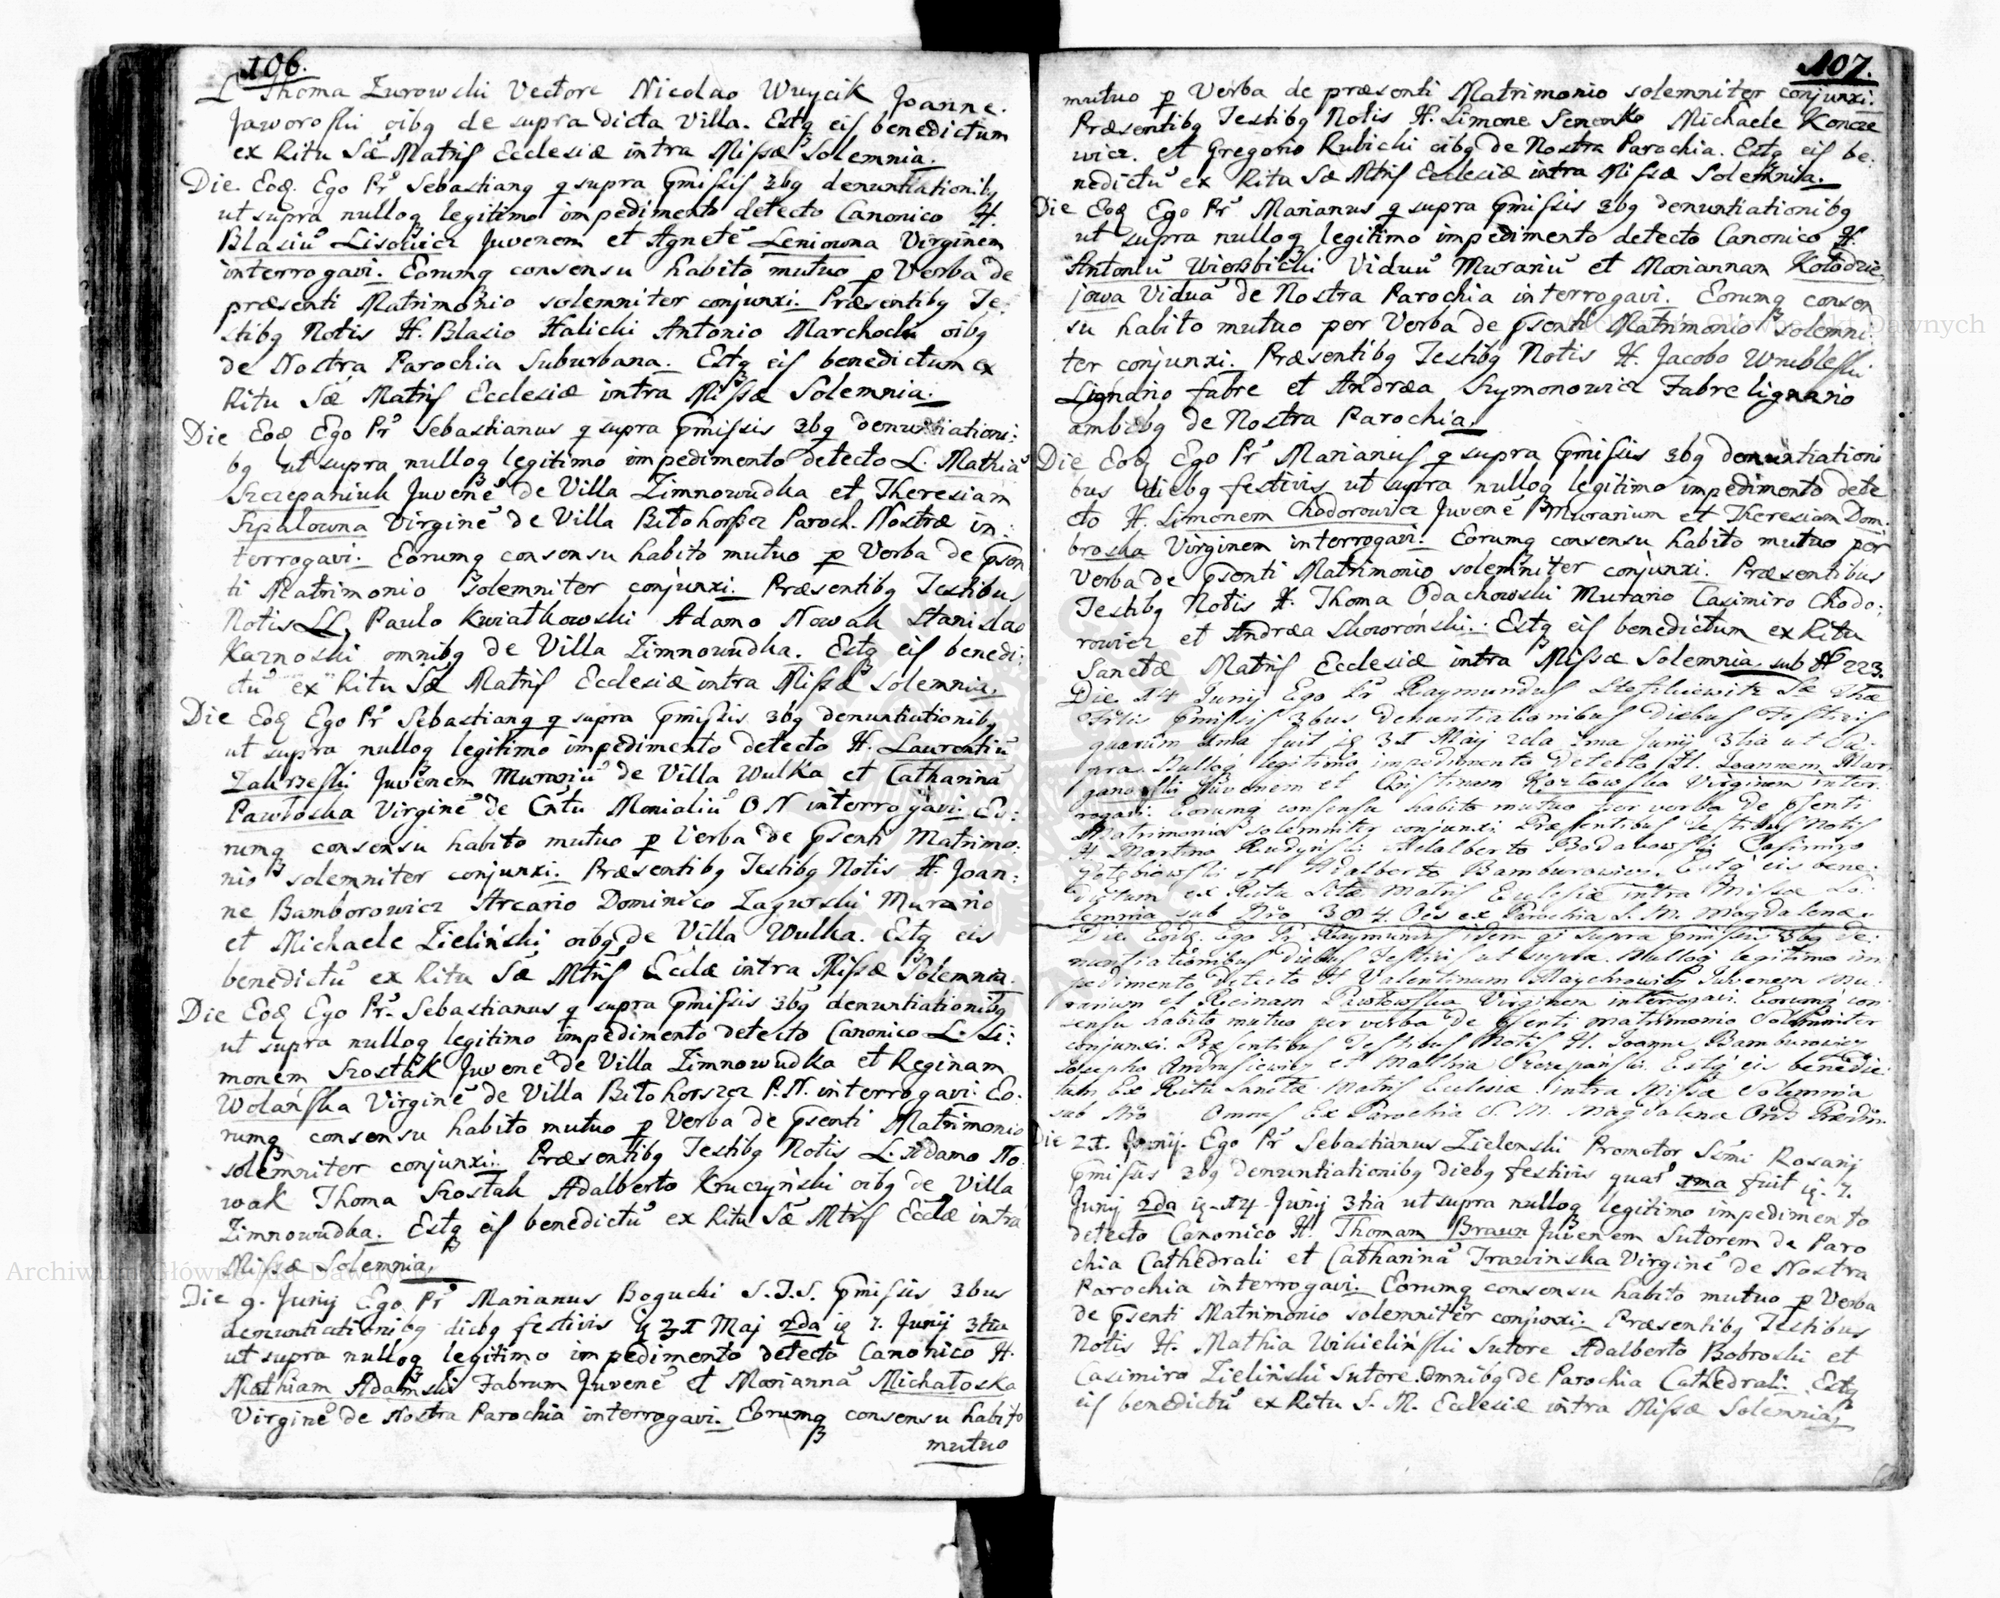 106.
L Thoma Zurowski Vectore Nicolao Wuycik Joanne
Jaworoski oibq de supra dicta Villa. Estq eis benedictum
ex Ritu Sæ Matris Ecclesiæ intra Missæ Solemnia.
Die Eod. Ego Pr Sebastianq q supra pmissis 3bq denuntiationibq
ut supra nulloq legitimo impedimento detecto Canonico H.
Blasiū Lisowicz Juvenem et Agnetē Leniowna Virginem
interrogavi. Eorumq consensu habito mutuo p Verba de
præsenti Matrimonio solemniter conjunxi. Præsentibq Te:
stibq Notis H. Blasio Halicki Antonio Marchocki oibq
de Nostra Parochia Suburbana. Estq eis benedictum ex
Ritu Sæ Matris Ecclesiæ intra Missæ Solemnia.
Die Eod Ego Pr Sebastianus q supra pmissis 3bq denuntiationi:
bq ut supra nulloq legitimo impedimento detecto L. Mathiā
Szczepaniuk Juvenē de Villa Zimnowudka et Theresiam
Szpalowna Virginē de Villa Biłohorszcz Paroch. Nostræ in:
terrogavi. Eorumq consensu habito mutuo p Verba de psen
ti Matrimonio solemniter conjunxi. Præsentibq Testibus
Notis LL. Paulo Kwiatkowski Adamo Nowak Stanislao
Kaznoski omnibq de Villa Zimnowudka. Estq eis benedi:
ctū ex Ritu Sæ Matris Ecclesiæ intra Missæ Solemnia.
Die Eod Ego Pr Sebastianq q supra pmissis 3bq denuntiationibq
ut supra nulloq legitimo impedimento detecto H. Laurentiū
Zakrzeski Juvenem Murariū de Villa Wulka et Catharinā
Pawłoska Virginē de Cntu Monialiū O N interrogavi. Eo:
rumq consensu habito mutuo p Verba de psenti Matrimo:
nio solemniter conjunxi. Præsentibq Testibq Notis H. Joan:
ne Bamborowicz Arcario Dominico Zagurski Murario
et Michaele Zieliński oibq de Villa Wulka. Estq eis
benedictū ex Ritu Sæ Mtris Ecclæ intra Missæ Solemnia.
Die Eod Ego Pr. Sebastianus q supra pmissis 3bq denuntiationibq
ut supra nulloq legitimo impedimento detecto Canonico L. Si:
monem Szostak Juvenē de Villa Zimnowudka et Reginam
Wolańska Virginē de Villa Biłohorszcz P.N. interrogavi. Eo:
rumq consensu habito mutuo p Verba de psenti Matrimonio
solemniter conjunxi. Præsentibq Testibq Notis L. Adamo No
wak Thoma Szostak Adalberto Kruczyński oibq de Villa
Zimnowudka. Estq eis benedictū ex Ritu Sæ Mtris Ecclæ intra
Missæ Solemnia.
Die 9. Junij Ego Pr Marianus Bogucki S.T.S. pmissis 3bus
denuntiationibq diebq festivis 31 Maj 2da 7. Junij 3tia
ut supra nulloq legitimo impedimento detecto Canonico H.
Mathiam Adamski Fabrum Juvenē et Mariannā Michałoska
Virginē de Nostra Parochia interrogavi. Eorumq consensu habito
mutuo
107.
mutuo p Verba de præsenti Matrimonio solemniter conjunxi.
Præsentibq Testibq Notis H. Simone Senenko Michaele Koncze
wicz. et Gregorio Rubicki oibq de Nostra Parochia. Estq eis be:
nedictū ex Ritu Sæ Mtris Ecclesiæ intra Missæ Solemnia.
Die Eod Ego Pr Marianus q supra pmissis 3bq denuntiationibq
ut supra nulloq legitimo impedimento detecto Canonico H.
Antoniū Wierzbicki Viduū Murariū et Mariannam Kołodzie
jowa Viduā de Nostra Parochia interrogavi. Eorumq consen
su habito mutuo per Verba de psenti Matrimonio solemni:
ter conjunxi. Præsentibq Testibq Notis H. Jacobo Wrubleski
Lignario fabre et Andræa Szymonowicz Fabre lignario
ambibq de Nostra Parochia.
Die Eod Ego Pr Marianus q supra pmissis 3bq denuntiationi
bus diebq festivis ut supra nulloq legitimo impedimento dete
cto H. Simonem Chodorowicz Juvenē Murarium et Theresiam Dom:
broska Virginem interrogavi. Eorumq consensu habito mutuo per
Verba de psenti Matrimonio solemniter conjunxi. Præsentibus
Testibq Notis H. Thoma Odachowski Murario Casimiro Chodo:
rowicz et Andræa Skoworoński. Estq eis benedictum ex Ritu
Sanctæ Matris Ecclesiæ intra Missæ Solemnia sub No 223.
Die 14 Junij Ego Pr Raymundus Sæ Thæ
pmissis 3bus denuntiationibus Diebus Festivis
quarum 1ma fuit 31 Maij 2da 7ma Junij 3tia ut Su:
pra. Nulloq legitimo impedimento Detecto H. Joannem
Juvenem et Christinam Kozlowska Virginem inter:
rogavi: Eorumq consensu habito mutuo per verba De psenti
Matrimonio solemniter conjunxi. Præsentibus Testibus Notis
H. Martino Adalberto Casimiro
et Adalberto Bamburowicz. Estq eis bene:
dictum ex Ritu Stæ Matris Ecclesiæ intra Missæ So:
lemnia sub Nro 304 Oes ex Parochia S. M. Magdalenæ.
Die Eod. Ego Pr Raymundus idem q supra pmissis 3bq De:
nuntiationibus Diebus Festivis ut supra. Nulloq legitimo im
pedimento Detecto H Valentinum Juvenem Mu:
rarium et Reginam Pawłowska Virginem interrogavi. Eorumq con:
sensu habito mutuo per verba De psenti Matrimonio Solemniter
conjunxi. Præsentibus Testibus Notis H. Joanne Bamburowicz
Josepho Andrusiewicz et Mathia Szczepański. Estq eis benedic
tum Ex Ritu Sanctæ Matris Ecclesiæ intra Missæ Solemnia
sub Nro Omnes Ex Parochia S. M. Magdalena
Die 21. Junij. Ego Pr Sebastianus Zielenski Promotor Ssmi Rosarij
pmissis 3bq denuntiationibq diebq festivis quar 1ma fuit 7.
Junij 2da 14 Junij 3tia ut supra nulloq legitimo impedimento
detecto Canonico H. Thomam Braun Juvenem Sutorem de Paro
chia Cathedrali et Catharinā Trawinska Virginē de Nostra
Parochia interrogavi. Eorumq consensu habito mutuo p Verba
de psenti Matrimonio solemniter conjunxi. Præsentibq Testibus
Notis H. Mathia Wikieliński Sutore Adalberto Bobroski et
Casimiro Zieliński Sutore. Omnibq de Parochia Cathedrali. Estq
eis benedictū ex Ritu S. M. Ecclesiæ intra Missæ Solemnia.
Archiwum Główne Akt Dawnych
Archiwum Główne Akt Dawnych